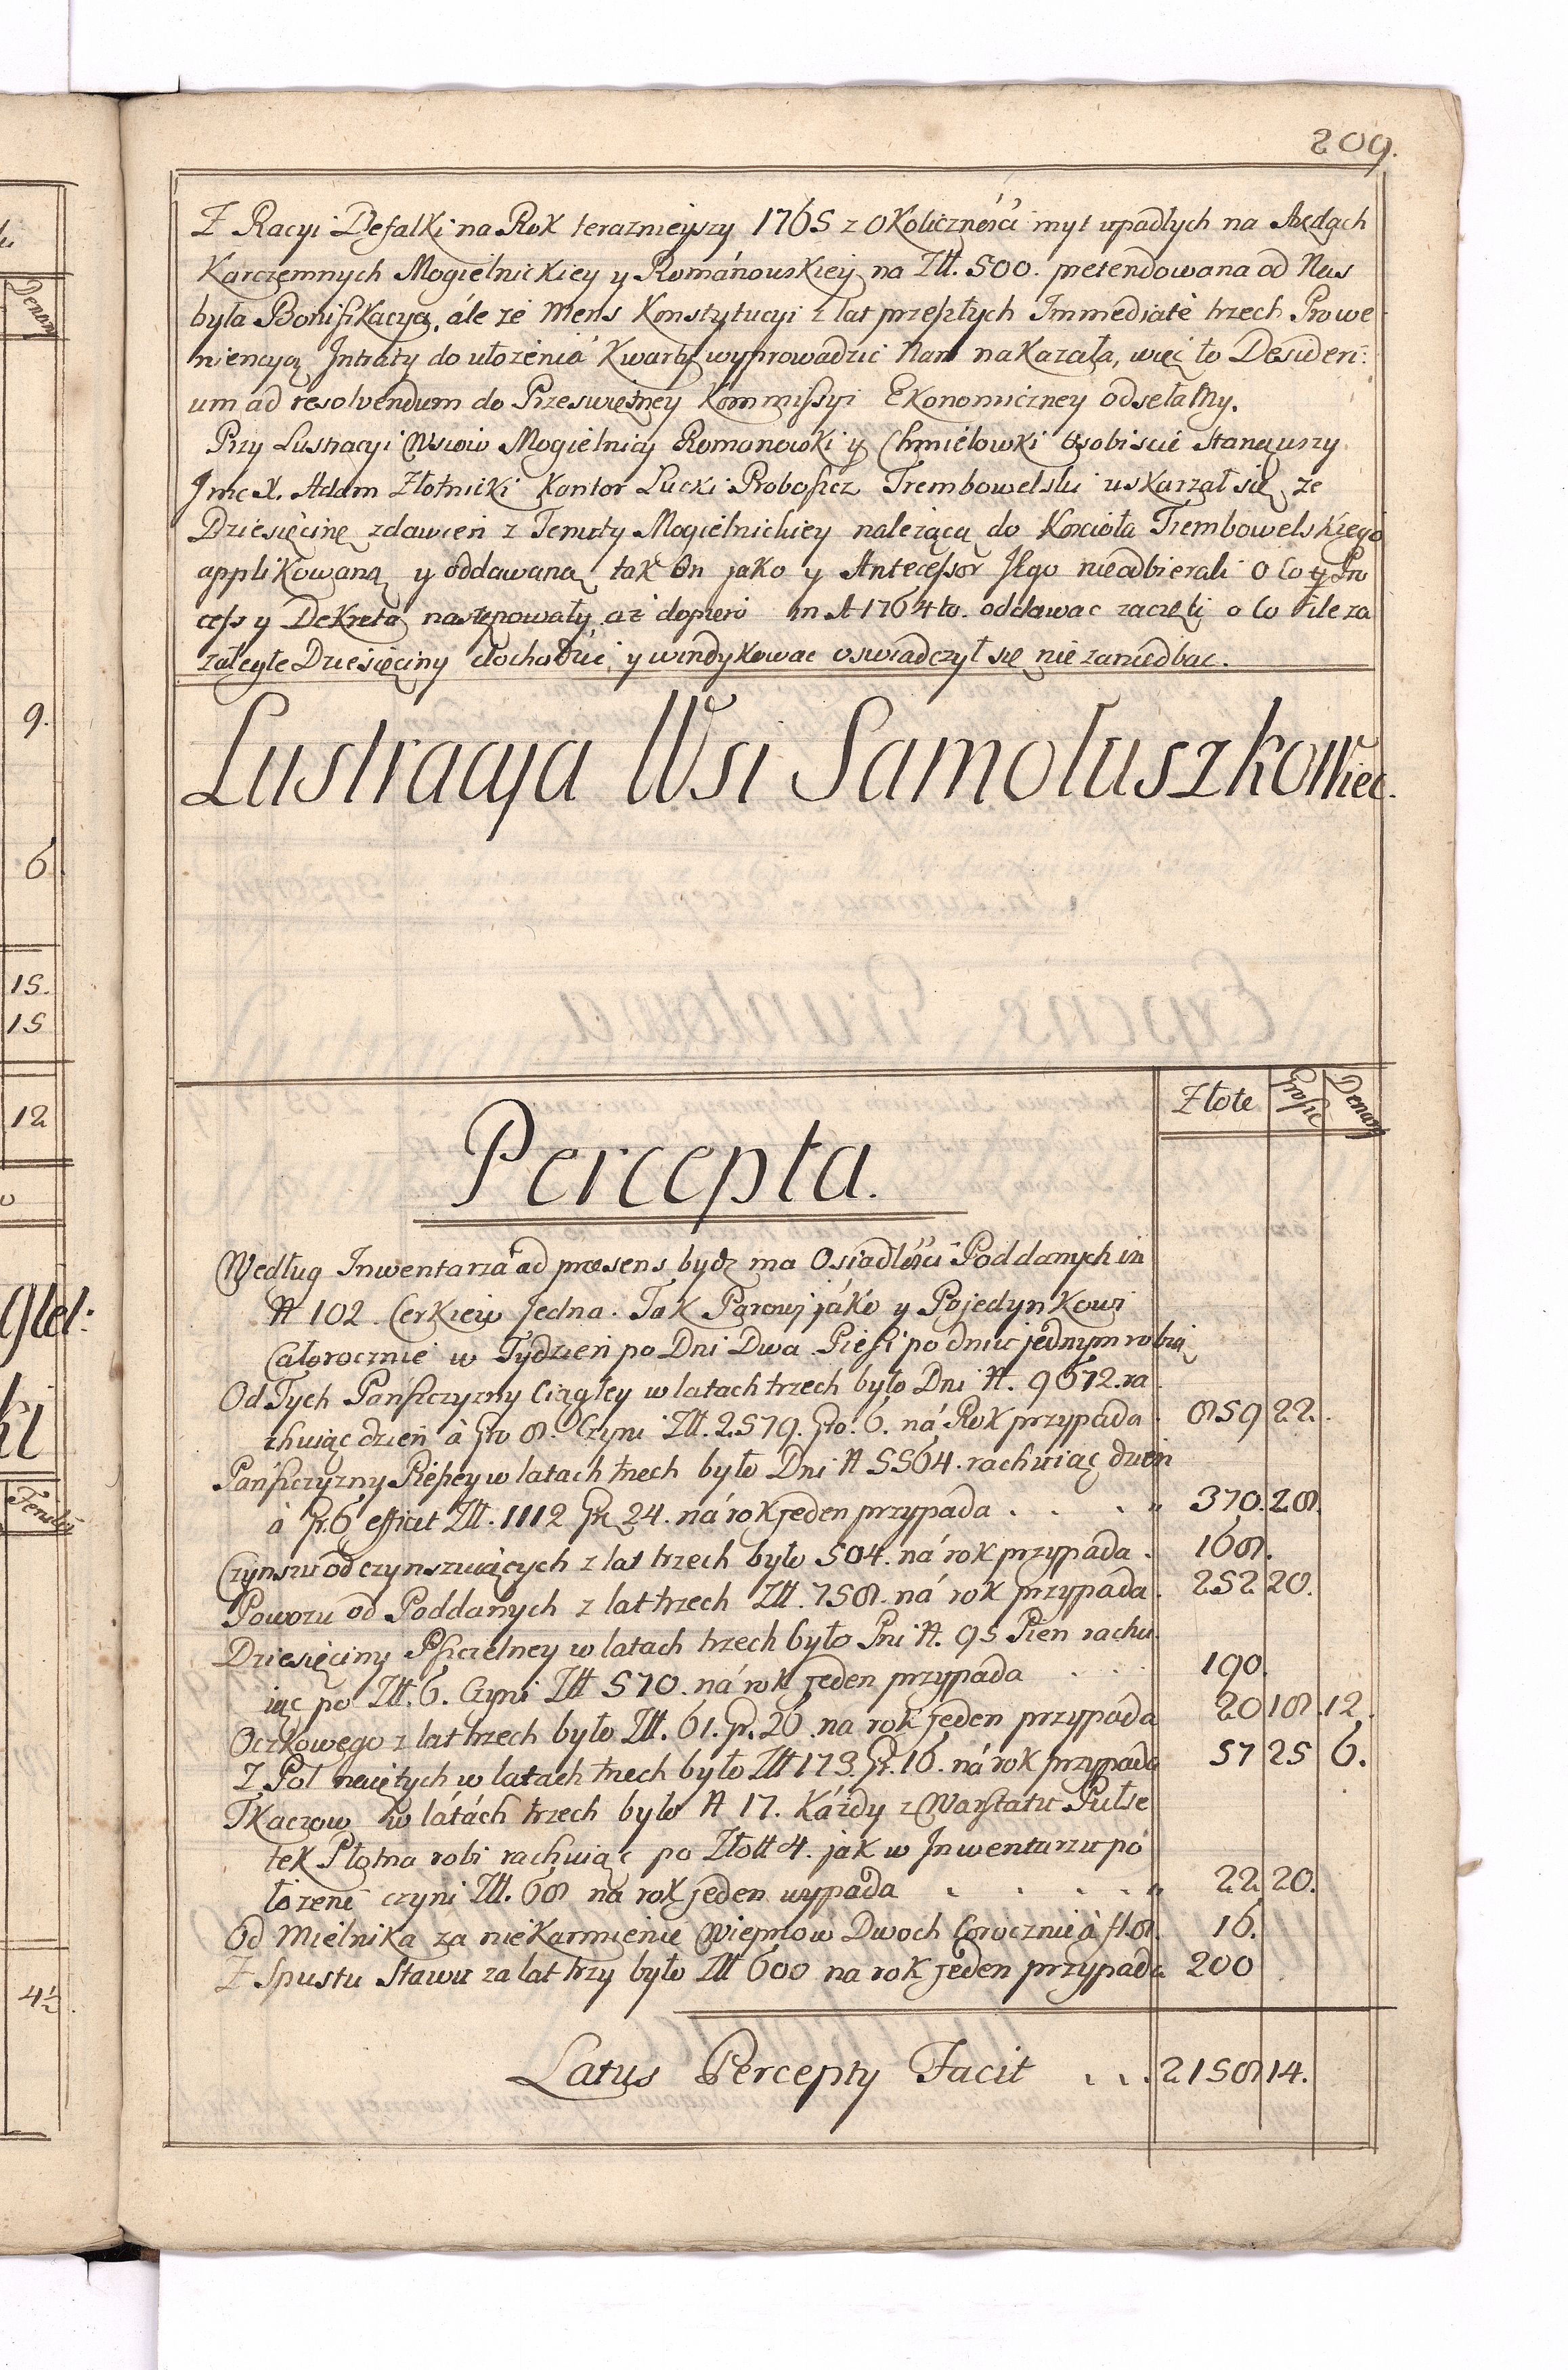 209.
Z Racyi Defalki na Rok terazneiyszy 1765 z okoliczności myt upadłych na Arędach
Karczemnych Mogielnickiey y Románowskiey na Złł. 500. pretendowana od Nas
była Bonifikacya, ále że Mens Konstytucyi z lat przeszłych Immediatè trzech Prowe-
niencyą Intraty do ułożenia Kwarty wyprowadzić Nam nakazała, więc to Desideri:
um ad resolvendum do Prześwietney Kommissyi Ekonomiczney odsełamy.
Przy Lustracyi Wsiow Mogielnicy Romanowki y Chmielowki osobiscie Stanąwszy
Jmc X. Adam Złotnicki Kantor Łucki Proboszcz Trembowelski uskarzał się, ze
Dziesięcinę zdawień z Tenuty Mogielnickiey należącą do Kościoła Trembowelskiego
applikowaną y oddawaną tak On jako y Antecessor JEgo nieodbierali o Co y Pro
cess y Dekreta następowały aż dopiero in A 1764to. oddawac zaczęli o Co ile za
zaległe Dziesięciny dochodzić, y windykowac oswiadczył się nie zaniedbac.
Lustracya Wsi Samołuszkowiec.
Złote Grosze Denary
Percepta.
Według Inwentarza ad præsens bydz ma Osiadłości Poddanych in
N 102. Cerkiew Jedna. Tak Parowi jáko y Pojedynkowi
Całorocznie w Tydzień po Dni Dwa Pieszi po dniu jednym robią
Od Tych Pańszczyzny Ciągłey w latach trzech było Dni N. 9672. ra
chuiąc dzień à Gro 8. Czyni Złł. 2579. Gro. 6. ná Rok przypada . 859 22.
Pańszczyzny Pieszey w latach trzech było Dni N 5564. rachuiąc dzień
à Gr. 6 efficit Złł. 1112 Gr. 24. ná rok jeden przypada . . . . 370. 28.
Czynszu od czynszuiących z lat trzech było 504. ná rok przypada . 168.
Powozu od Poddanych z lat trzech Złł. 758. ná rok przypada . 252 20.
Dziesięciny Pszczelney w latach trzech było Pni N. 95 Pień rachu
iąc po Złł. 6. Czyni Złł 570. ná rok jeden przypada . . . 190.
Oczkowego z lat trzech było Złł. 61. Gr. 26 na rok jeden przypada 20 18. 12.
Z Pol naiętych w latach trzech było Złł 173. Gr. 16. ná rok przypada 57 25 6.
Tkaczow w látách trzech było N 17. Káżdy z Warsztatu Pułse
tek Płotna robi rachuiąc po Złott 4. jak w Inwentarzu po
łożenè czyni Złł. 68 na rok jeden wypada . . . . 22 20.
Od Mielnika za niekarmienie Wieprzow Dwoch Corocznie à fl. 8. 16.
Z Spustu Stawu za lat trzy było Złł 600 na rok jeden przypada 200
Latus Percepty Facit . . . 2158 14.
Denary
9.
6.
15.
15
12